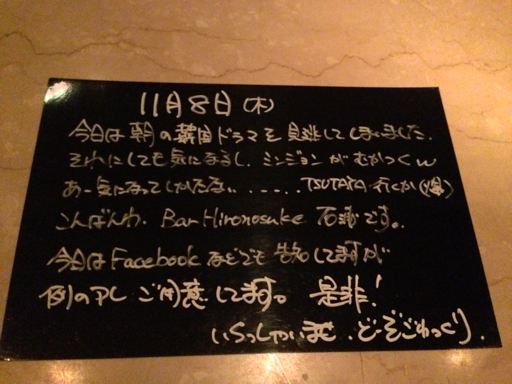 11月8日(木)
今日は朝の韓国ドラマを見逃してしまいました.
それにしても気になるし、ミンジョンがむかつくw
あー気になってしかたない..‥‥TSUTAYA行くか(爆)
こんばんわ. Bar Hironosuke 石浦です。
今日はFacebookなどでも告知してますが
例のアレ ご用意してます。 是非!
いらっしゃいませ.どーぞごゆっくり.